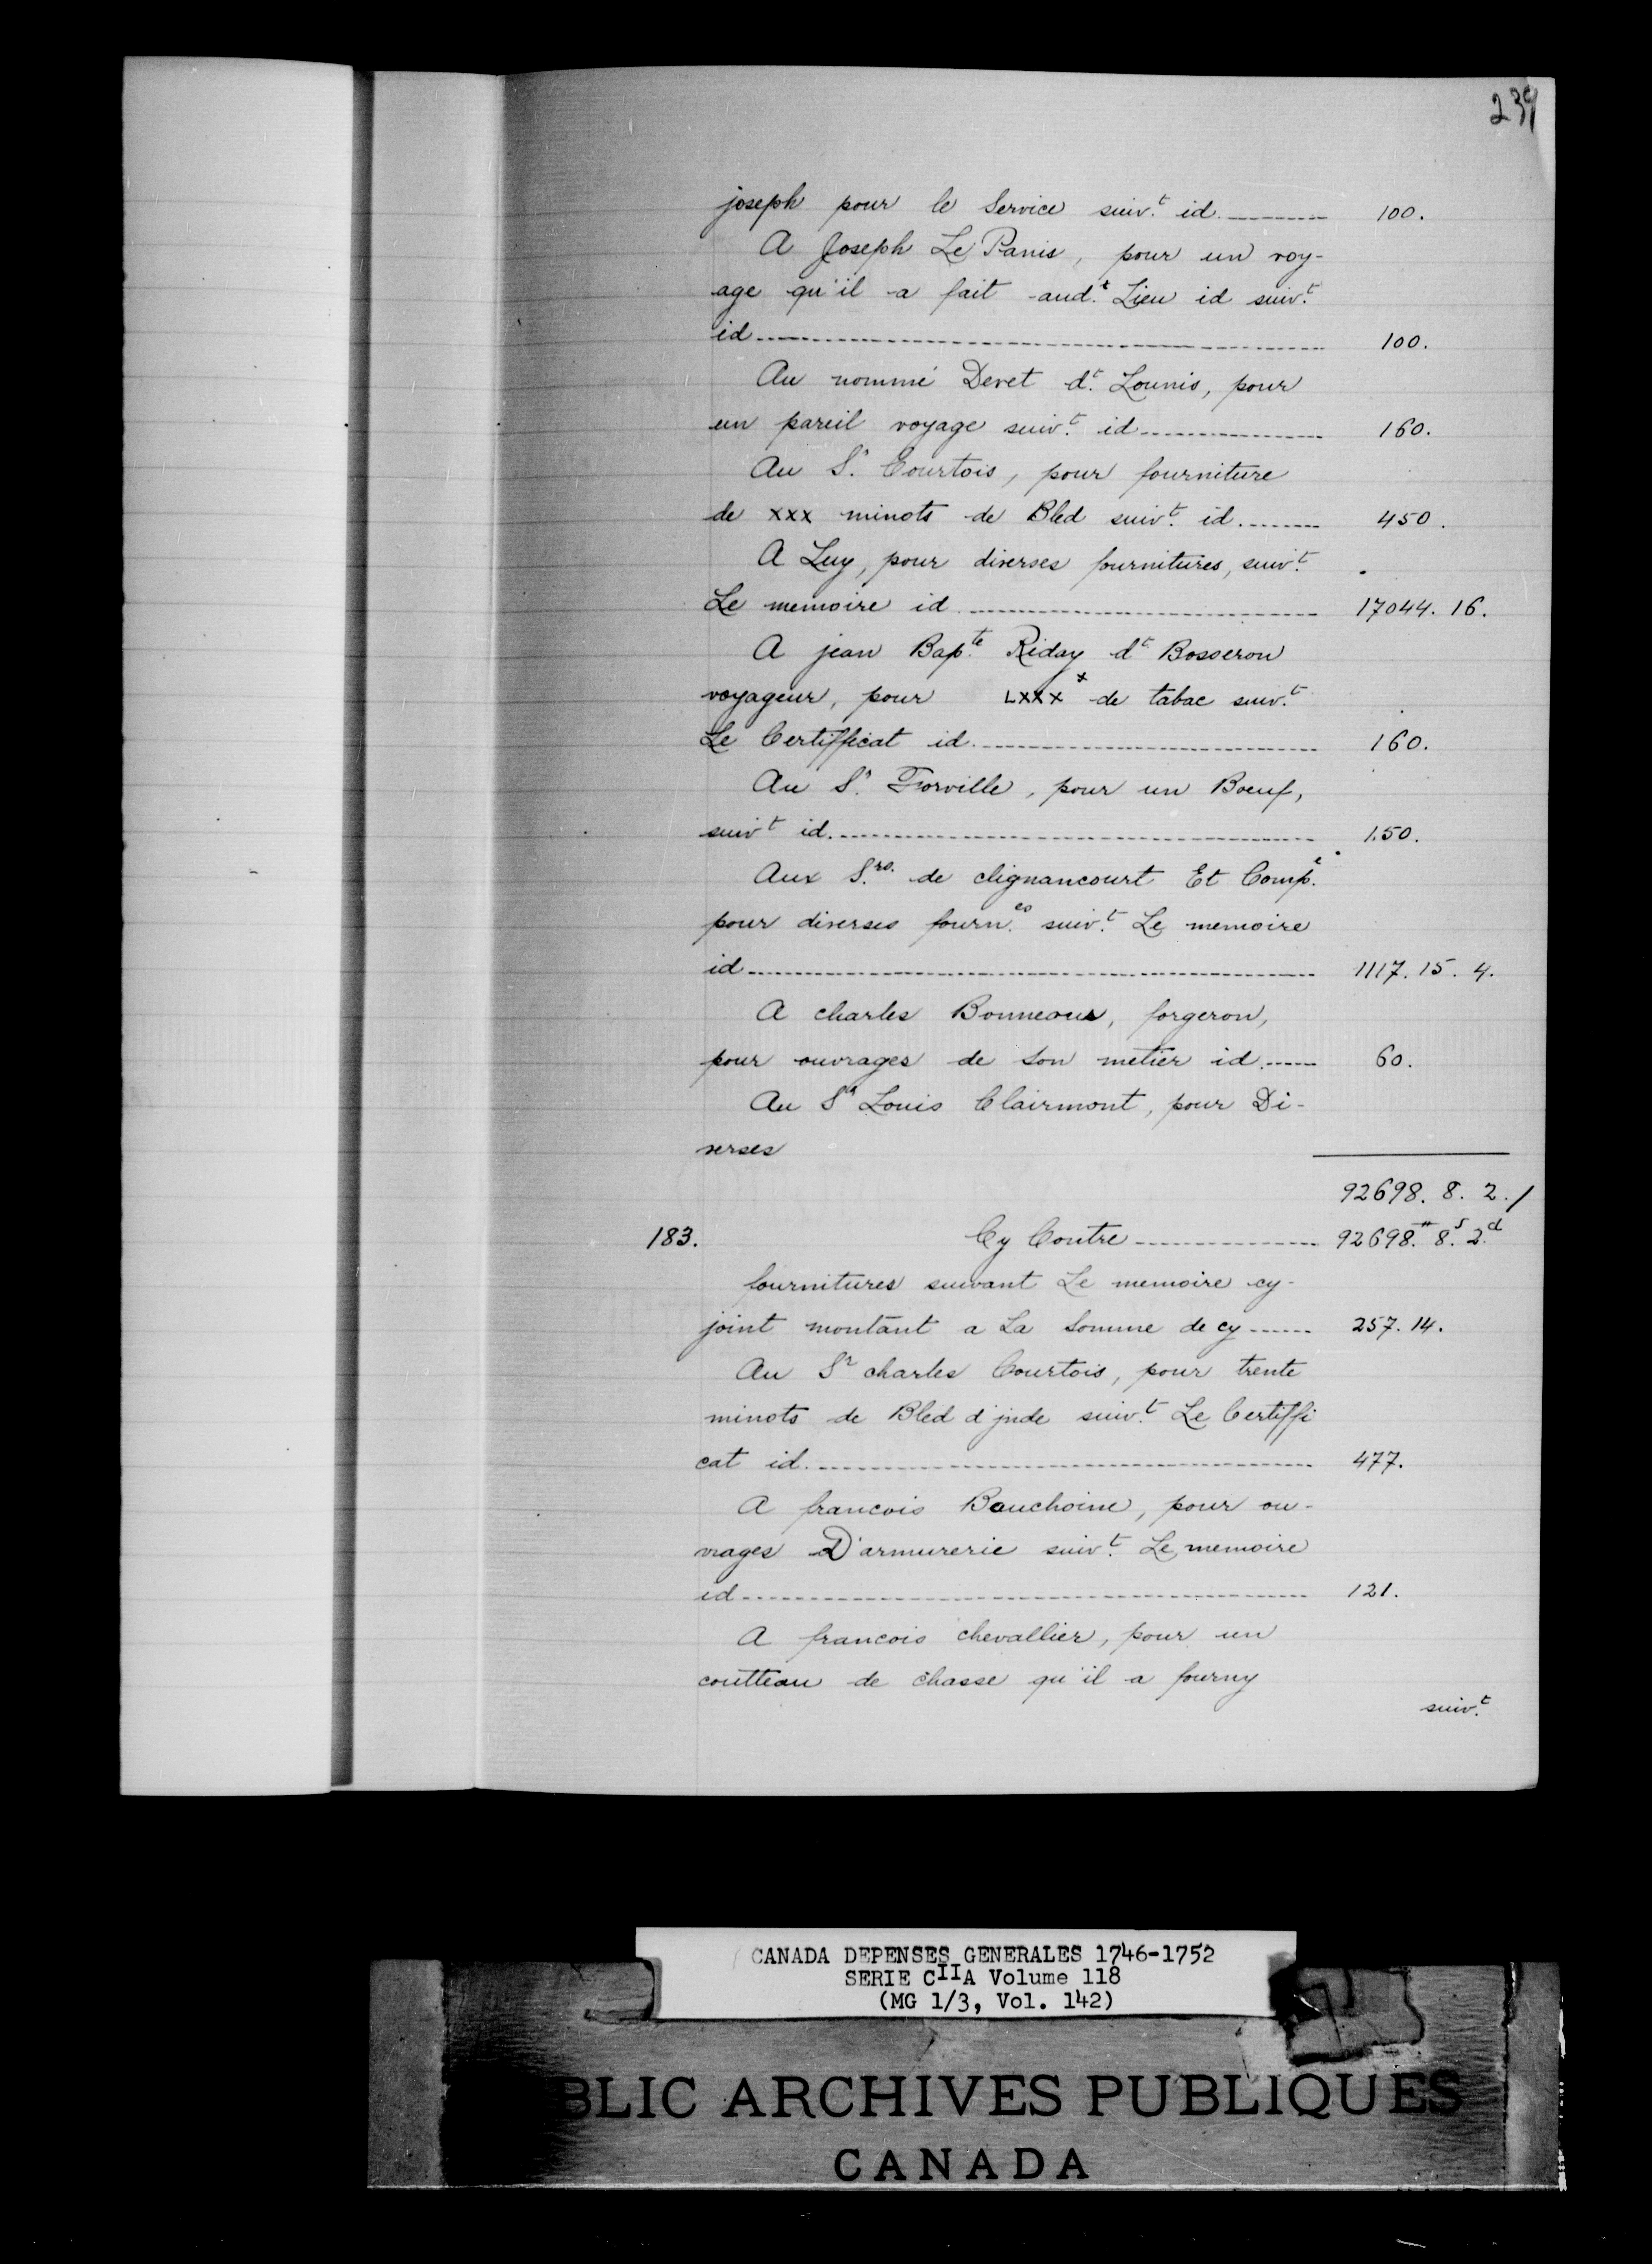 239
joseph pour le Service suiv.t id ........ 100.
A Joseph Le Panis, pour un voy-
age qu'il a fait aud.t Lieu id suiv.t
id ........ 100.
Au nommé Devet d.t Lounis, pour
un pareil voyage suiv.t id ........ 160.
Au S.r Courtois, pour fourniture
de xxx minots de Bled suiv.t id ........ 450.
A Luy, pour diverses fournitures, suiv.t
Le memoire id ........ 17044. 16.
A jean Bap.te Riday d.t Bosseron
voyageur, pour LXXX + de tabac suiv.t
Le Certifficat id ........ 160.
Au S.r Forville, pour un Boeuf,
suiv.t id ........ 150.
Aux S.rs de clignancourt Et Comp.e
pour diverses fourn.es suiv.t Le memoire
id ........ 1117. 15. 4.
A charles Bonneaux, forgeron,
pour ouvrages de son metier id ........ 60.
Au S.r Louis Clairmont, pour Di-
verses
92698. 8. 2. /
183. Cy Contre ........ 92698.# 8.s 2.d
fournitures suivant Le memoire cy-
joint montant a La Somme de cy ........ 257. 14.
Au S.r charles Courtois, pour trente
minots de Bled d'jnde suiv.t Le Certiffi
cat id ........ 477.
A francois Bauchoine, pour ou-
vrages D'armurerie suiv.t Le memoire
id ........ 121.
A francois chevallier, pour un
coutteau de chasse qu'il a fourny
suiv.t
CANADA DEPENSES GENERALES 1746-1752
SERIE CIIA Volume 118
(MG 1/3, Vol. 142)
BLIC ARCHIVES PUBLIQUES
CANADA